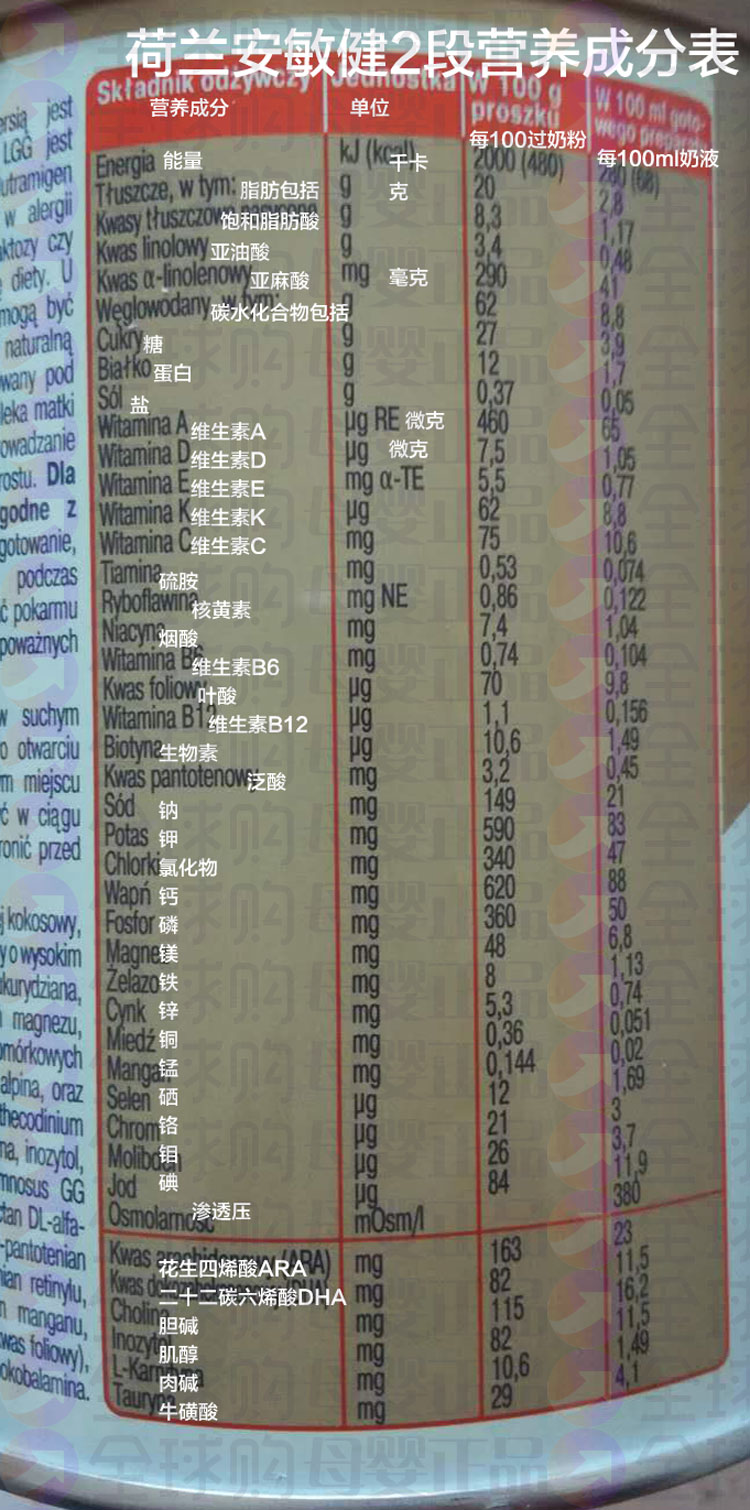 荷兰安敏健2段营养成分表
Składnik odżywczy Jednostka W 100 g proszku W 100 ml goto-wego prepa
营养成分 单位 每100过奶粉 每100ml奶液
Energia 能量 kJ (kcal) 千卡 2000 (480) 280 (68)
Tłuszcze, w tym: 脂肪包括 g 克 20 2,8
Kwasy tłuszczowe 饱和脂肪酸 g 8,3 1,17
Kwas linolowy 亚油酸 g 3,4 0,48
Kwas α-linolenowy 亚麻酸 mg 毫克 290 41
Węglowodany, w tym: 碳水化合物包括 g 62 8,8
Cukry 糖 g 27 3,9
Białko 蛋白 g 12 1,7
Sól 盐 g 0,37 0,05
Witamina A 维生素A µg RE 微克 460 65
Witamina D 维生素D µg 微克 7,5 1,05
Witamina E 维生素E mg α-TE 5,5 0,77
Witamina K 维生素K µg 62 8,8
Witamina C 维生素C mg 75 10,6
Tiamina 硫胺 mg 0,53 0,074
Ryboflawina 核黄素 mg NE 0,86 0,122
Niacyna 烟酸 mg 7,4 1,04
Witamina B6 维生素B6 mg 0,74 0,104
Kwas foliowy 叶酸 µg 70 9,8
Witamina B12 维生素B12 µg 1,1 0,156
Biotyna 生物素 µg 10,6 1,49
Kwas pantotenowy 泛酸 mg 3,2 0,45
Sód 钠 mg 149 21
Potas 钾 mg 590 83
Chlorki 氯化物 mg 340 47
Wapń 钙 mg 620 88
Fosfor 磷 mg 360 50
Magnez 镁 mg 48 6,8
Żelazo 铁 mg 8 1,13
Cynk 锌 mg 5,3 0,74
Miedź 铜 mg 0,36 0,051
Mangan 锰 mg 0,144 0,02
Selen 硒 µg 12 1,69
Chrom 铬 µg 21 3
Molibden 钼 µg 26 3,7
Jod 碘 µg 84 11,9
Osmolarność 渗透压 mOsm/l 380
Kwas arachidonowy (ARA) 花生四烯酸ARA mg 163 23
Kwas dokozaheksaenowy (DHA) 二十二碳六烯酸DHA mg 82 11,5
Cholina 胆碱 mg 115 16,2
Inozytol 肌醇 mg 82 11,5
L-Karnityna 肉碱 mg 10,6 1,49
Tauryna 牛磺酸 mg 29 4,1
jest
LGG jest
utramigen
w alergii
czy
diety. U
mogą być
naturalną
pod
matki
rostu. Dla
godne z
gotowanie,
podczas
pokarmu
poważnych
w suchym
o otwarciu
miejscu
w ciągu
przed
kokosowy,
wysokim
magnezu,
alpina, oraz
inozytol,
GG
DL-alfa-
retinylu,
manganu,
kwas foliowy),
全球购母婴正品